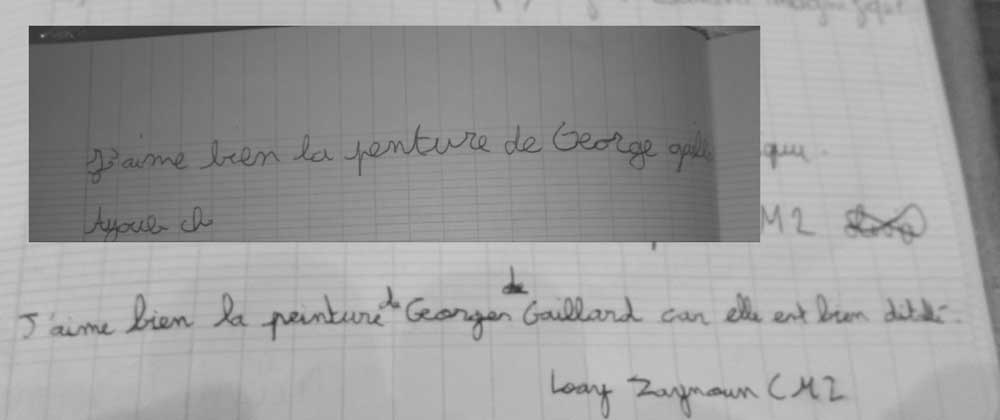 J'aime bien la penture de George
Ayoub ch
M2
J'aime bien la peinture de Georges Gaillard car elle est bien
Loay Zaynoun CM2